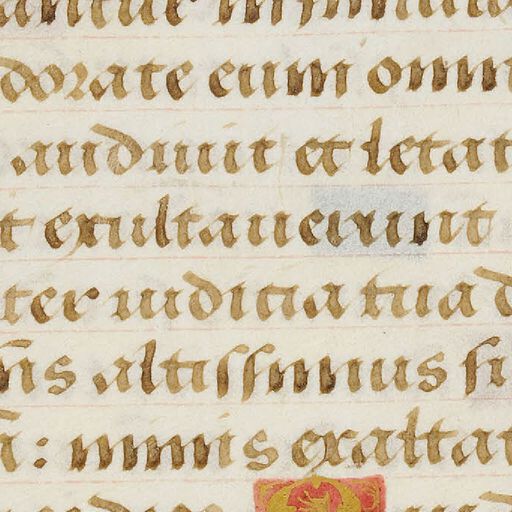 dorate eum omn
audiuit et letat
t exultauerunt
ter iudicia tua d
altissimus su
nimis exaltat